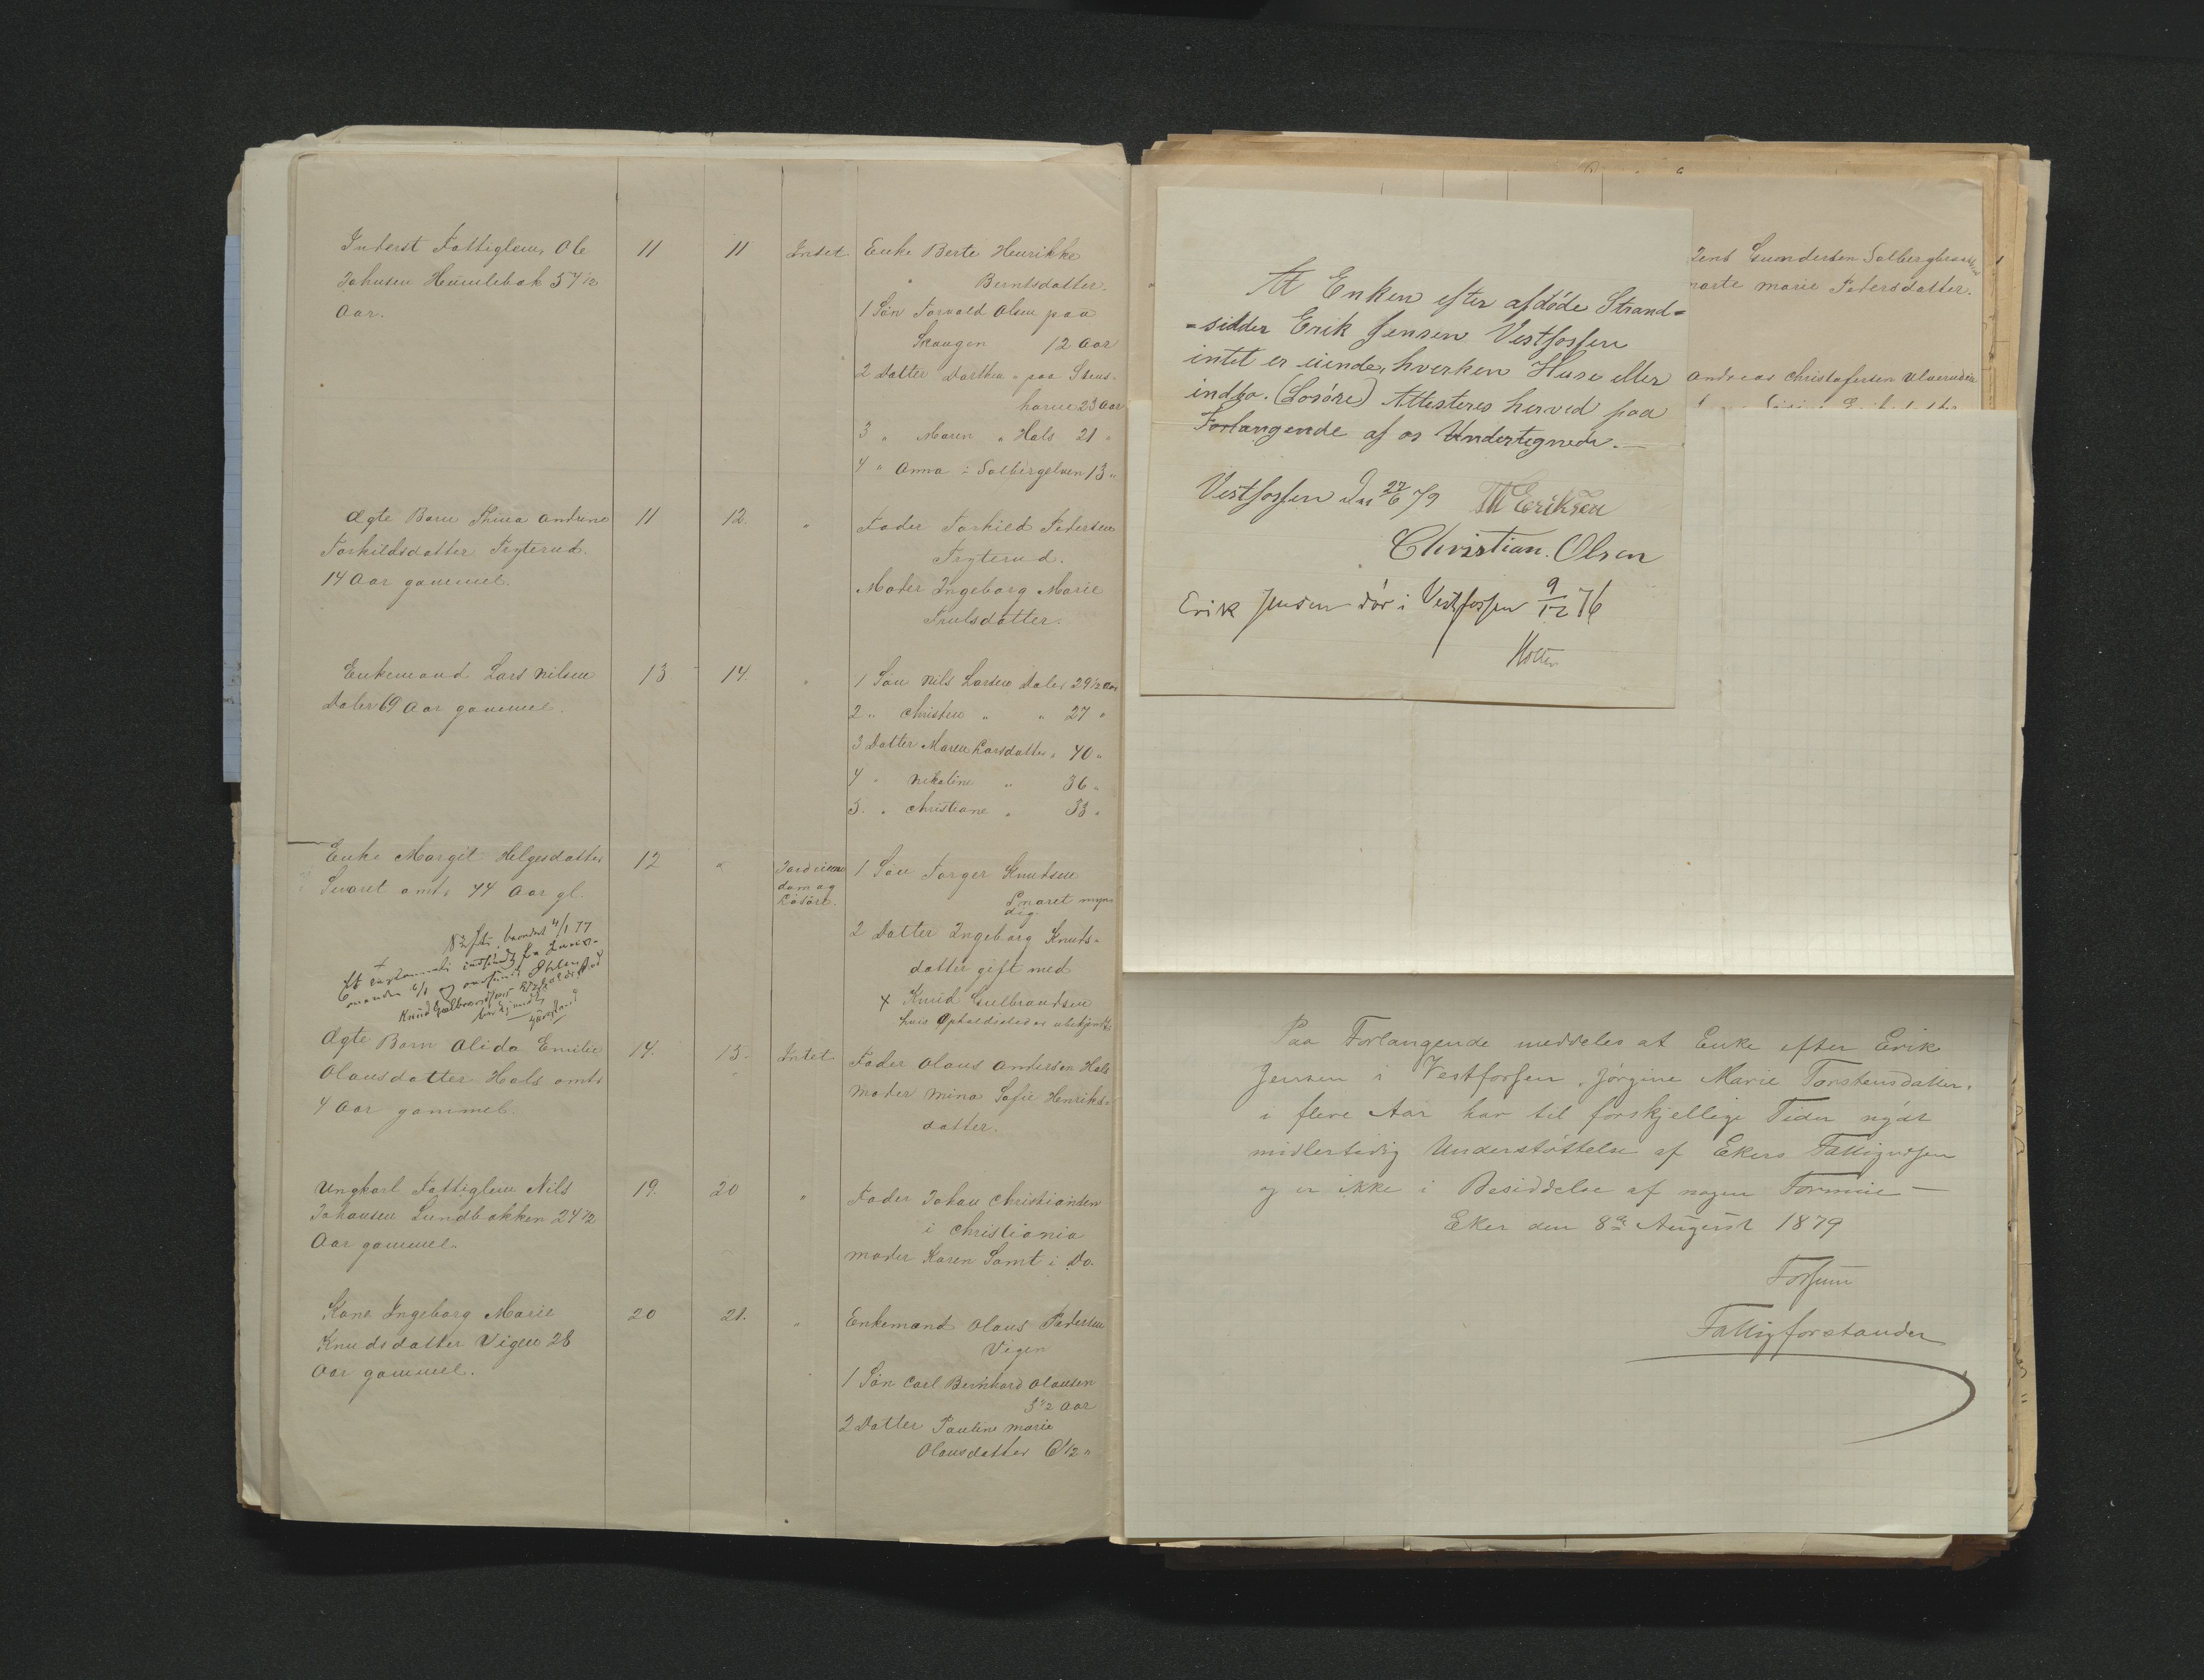 Inderst Fattiglem Ole 11 11 Intet Enke Berte Henrikke
Johnsen Humlebæk 57 1/2 Berntsdatter.
Aar. 1 Søn Torvald Olsen paa
Skaugen 12 Aar
2 Datter Dorthea " paa Stens-
horne 23 Aar
3 " Maren " Hals 21 "
4 " Anna i Solbergelven 13 "
Ægte Barn Thina Andrine 11 12. " Fader Torkild Pedersen
Torkildsdatter Frygterud. Frygterud.
14 Aar gammel. Moder Ingeborg Marie
Trulsdatter.
Enkemand Lars Nilsen 13 14. " 1 Søn Nils Larsen Daler 29 1/2 Aar
Daler 69 Aar gammel. 2 " Christen " " 27 "
3 Datter Maren Larsdatter " 40 "
4 " Nikoline " 36 "
5. " Christiane " 33 "
Enke Margit Helgesdatter 12 " Jordeien 1 Søn Torger Knudsen
Snaret omtr 44 Aar gl. dom og Snaret myn
Løsøre. dig.
2 Datter Ingeborg Knuds-
datter gift med
x Knud Gulbrandsen
hvis Opholdssted er ubekjendt.
Ægte Barn Alida Emilie 14. 15. Intet Fader Olaus Andersen Hals
Olausdatter Hals omtr Moder Mina Sofie Henriks-
4 Aar gammel. datter.
Ungkarl Fattiglem Nils 19. 20 " Fader Johan Christiansen
Johansen Lundbakken 24 1/2 i Christiania
Aar gammel. Moder Karen Samt i Do.
Kone Ingeborg Marie 20 21. " Enkemand Olaus Pedersen
Knudsdatter Vigen 28 Vigen
Aar gammel. 1 Søn Carl Bernhard Olausen
3 1/2 Aar
2 Datter Pauline Marie
Olausdatter 6 1/2 "
At Enken efter afdøde Strand=
=sidder Erik Jensen Vestfossen
intet er eiende, hverken Huse eller
indbo. (Løsøre) Attesteres herved paa
Forlangende af os Undertegnede.
Vestfossen den 27/6 79 M Eriksen
Christian. Olsen
Erik Jensen dør i Vestfossen 9/12 76
Holter
Jens Gundersen Solbergbraaten
Marte Marie Pedersdatter.
Andreas Christofersen Ulverudeie
Paa Forlangende meddeles at Enke efter Erik
Jensen i Vestfossen, Jørgine Marie Torstensdatter.
i flere Aar har til forskjellige Tider nydt
midlertidig Understøttelse af Ekers Fattigvesen
og er ikke i Besiddelse af nogen Formue —
Eker den 8de August 1879
Fossum
Fattigforstander